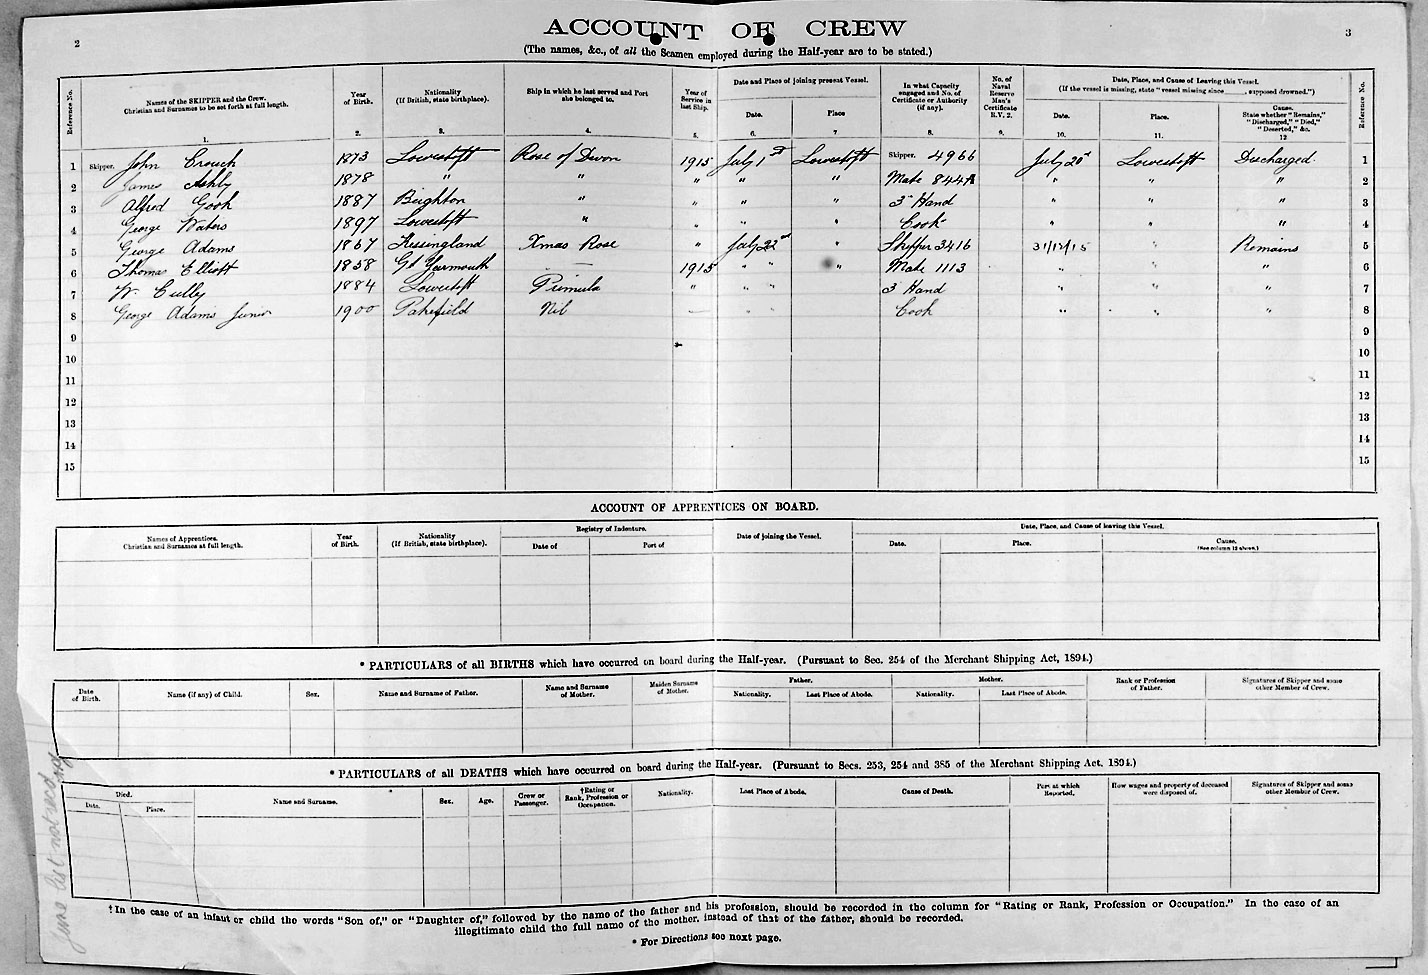 2
ACCOUNT OF CREW
3
(The names, &c., of all the Seamen employed during the Half-year are to be stated.)
Reference No.
Names of the SKIPPER and the Crew.
Christian and Surnames to be set forth at full length.
1.
Year
of Birth.
2.
Nationality
(If British, state birthplace).
3.
Ship in which he last served and Port
she belonged to.
4.
Year of
Service in
last Ship.
5.
Date and Place of joining present Vessel.
Date.
6.
Place
7
In what Capacity
engaged and No. of
Certificate or Authority
(if any).
8.
No. of
Naval
Reserve
Man's
Certificate
R.V. 2.
9.
Date, Place, and Cause of Leaving this Vessel.
(If the vessel is missing, state "vessel missing since ____, supposed drowned.")
Date.
10.
Place.
11.
Cause.
State whether "Remains,"
"Discharged," "Died,"
"Deserted," &c.
12
Reference No.
1 Skipper. John Crouch 1873 Lowestoft Rose of Devon 1915 July 1st Lowestoft Skipper. 4966 July 20d Lowestoft Discharged. 1
2 James Ashby 1878 " " " " " Mate 8447 " " " 2
3 Alfred Gooh 1887 Brighton " " " " 3 Hand " " " 3
4 George Waters 1897 Lowestoft " " " " Cook " " " 4
5 George Adams 1867 Kessingland Xmas Rose " July 22nd " Skipper 3416 31/12/15 " Remains 5
6 Thomas Elliott 1858 Gt Yarmouth — 1915 " " " Mate 1113 " " " 6
7 W. Culley 1884 Lowestoft Primula " " " 3 Hand " " " 7
8 George Adams Junior 1900 Pakefield Nil — " " Cook " " " 8
9 9
10 10
11 11
12 12
13 13
14 14
15 15
ACCOUNT OF APPRENTICES ON BOARD.
Names of Apprentices.
Christian and Surnames at full length.
Year
of Birth.
Nationality
(If British, state birthplace).
Registry of Indenture.
Date of
Port of
Date of joining the Vessel.
Date, Place, and Cause of leaving this Vessel.
Date.
Place.
Cause.
(See column 12 above.)
* PARTICULARS of all BIRTHS which have occurred on board during the Half-year. (Pursuant to Sec. 254 of the Merchant Shipping Act, 1894.)
Date
of Birth.
Name (if any) of Child.
Sex.
Name and Surname of Father.
Name and Surname
of Mother.
Maiden Surname
of Mother.
Father.
Nationality.
Last Place of Abode.
Mother.
Nationality.
Last Place of Abode.
Rank or Profession
of Father.
Signatures of Skipper and some
other Member of Crew.
* PARTICULARS of all DEATHS which have occurred on board during the Half-year. (Pursuant to Secs. 253, 254 and 385 of the Merchant Shipping Act. 1894.)
Died.
Date.
Place.
Name and Surname.
Sex.
Age.
Crew or
Passenger.
†Rating or
Rank, Profession or
Occupation.
Nationality.
Last Place of Abode.
Cause of Death.
Port at which
Reported.
How wages and property of deceased
were disposed of.
Signatures of Skipper and some
other Member of Crew.
† In the case of an infant or child the words "Son of," or "Daughter of," followed by the name of the father and his profession, should be recorded in the column for "Rating or Rank, Profession or Occupation." In the case of an
illegitimate child the full name of the mother, instead of that of the father, should be recorded.
* For Directions see next page.
June list not recd